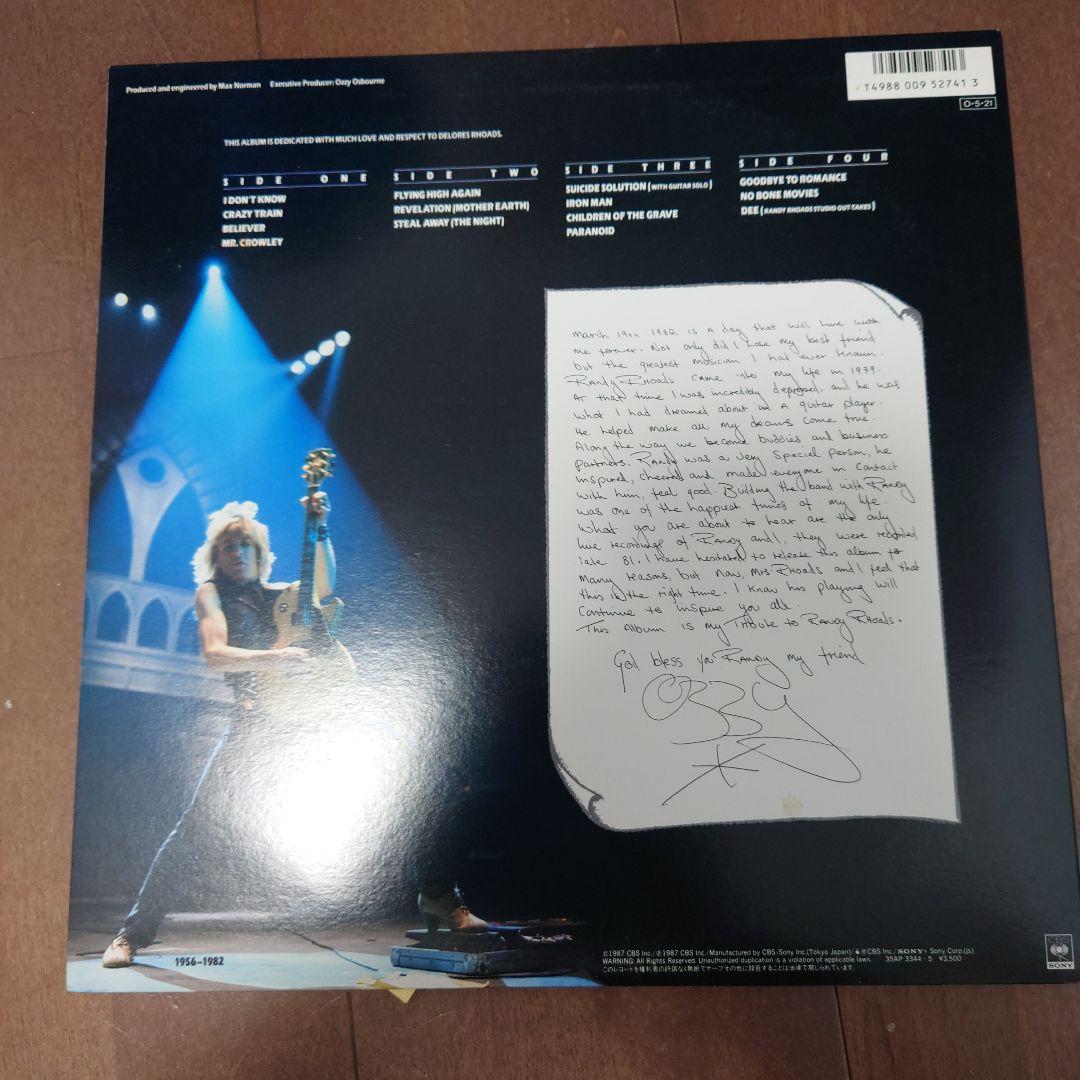 Produced and engineered by Max Norman Executive Producer: Ozzy Osbourne
T4988 009 52741 3
O-5-21
THIS ALBUM IS DEDICATED WITH MUCH LOVE AND RESPECT TO DELORES RHOADS.
SIDE ONE
I DON'T KNOW
CRAZY TRAIN
BELIEVER
MR. CROWLEY
SIDE TWO
FLYING HIGH AGAIN
REVELATION (MOTHER EARTH)
STEAL AWAY (THE NIGHT)
SIDE THREE
SUICIDE SOLUTION (WITH GUITAR SOLO)
IRON MAN
CHILDREN OF THE GRAVE
PARANOID
SIDE FOUR
GOODBYE TO ROMANCE
NO BONE MOVIES
DEE (RANDY RHOADS STUDIO OUT-TAKES)
March 19th 1982 is a day that will live with
me forever. Not only did I lose my best friend
but the greatest musician I had ever known.
Randy Rhoads came into my life in 1979.
At that time I was incredibly depressed, and he was
what I had dreamed about in a guitar player.
He helped make all my dreams come true.
Along the way we became buddies and business
partners. Randy was a very special person, he
inspired, cheered and made everyone in contact
with him, feel good. Building the band with Randy
was one of the happiest times of my life.
What you are about to hear are the only
live recordings of Randy and I, they were recorded
late 81. I have hesitated to release this album for
many reasons, but now, Mrs. Rhoads and I feel that
this is the right time. I know his playing will
continue to inspire you all.
This Album is my Tribute to Randy Rhoads.
God bless you Randy my friend
Ozzy
1956-1982
©1987 CBS Inc./℗1987 CBS Inc./Manufactured by CBS/Sony Inc.(Tokyo Japan)/ CBS Inc./SONY® Sony Corp.(js)
WARNING: All Rights Reserved. Unauthorized duplication is a violation of applicable laws. 35AP 3344-5 ¥3,500
このレコードを権利者の許諾なく無断でテープその他に録音することは法律で禁じられています。
SONY